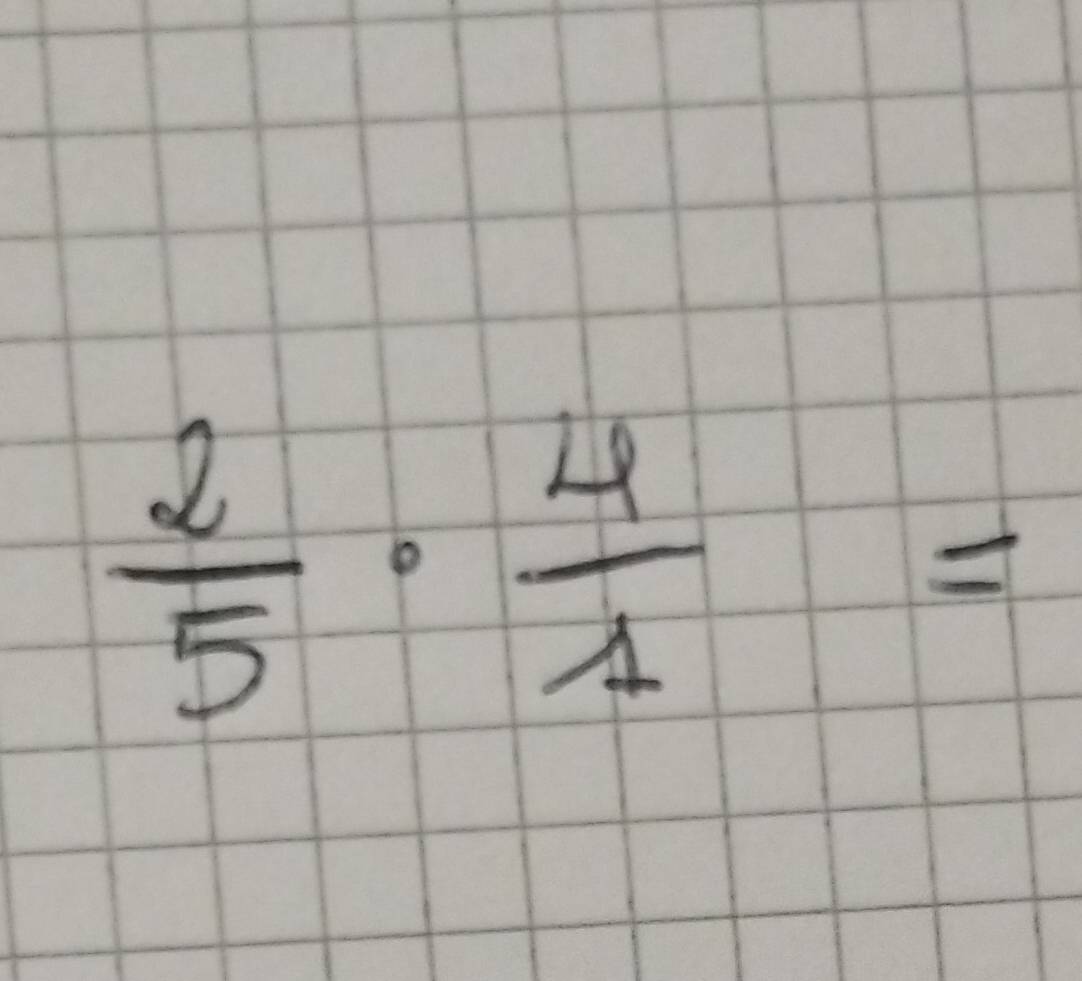 2/5 · 4/1 =